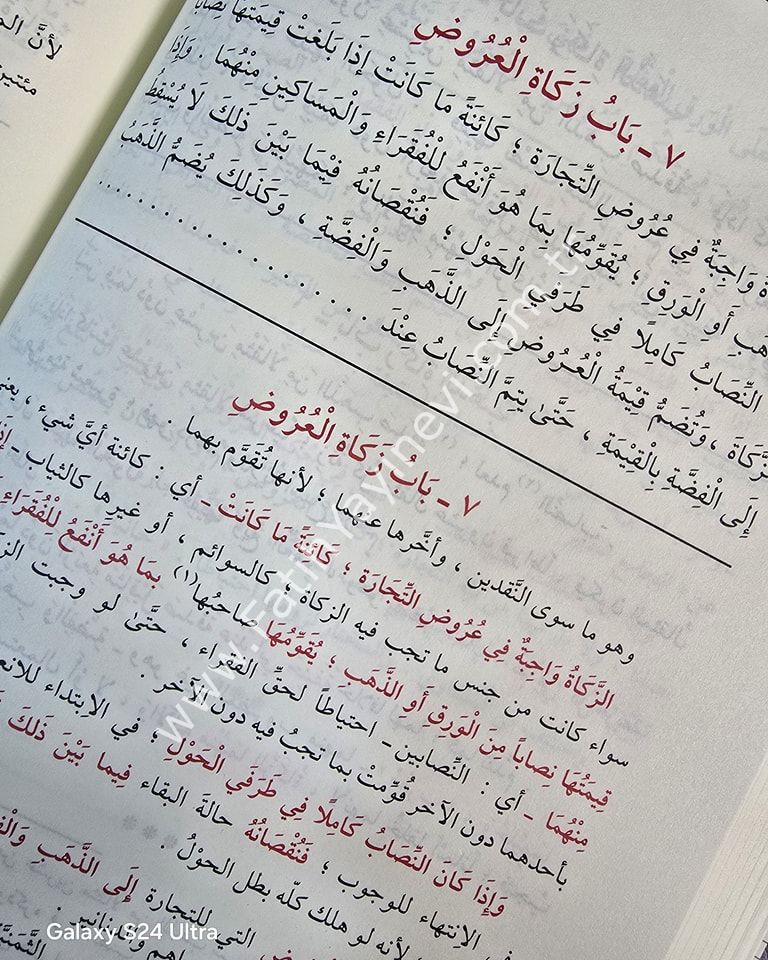 لأنَّ
مئتين
٧ - بَابُ زَكَاةِ الْعُرُوضِ
وَاجِبَةٌ فِي عُرُوضِ التِّجَارَةِ ؛ كَائِنَةً مَا كَانَتْ إِذَا بَلَغَتْ قِيمَتُهَا نِصَاباً
أَوِ الْوَرِقِ ؛ يُقَوِّمُهَا بِمَا هُوَ أَنْفَعُ لِلْفُقَرَاءِ وَالْمَسَاكِينِ مِنْهُمَا . وَإِذَا
النِّصَابُ كَامِلًا فِي طَرَفَيِ الْحَوْلِ ؛ فَنُقْصَانُهُ فِيْمَا بَيْنَ ذَلِكَ لَا يُسْقِطُ
الزَّكَاةَ ، وَتُضَمُّ قِيْمَةُ الْعُرُوضِ إِلَى الذَّهَبِ وَالْفِضَّةِ ، وَكَذَلِكَ يُضَمُّ الذَّهَبُ
إِلَى الْفِضَّةِ بِالْقِيْمَةِ ، حَتَّىٰ يَتِمَّ النِّصَابُ عِنْدَ ..................
٧ - بَابُ زَكَاةِ الْعُرُوضِ
وهو ما سوى النَّقدين ، وأخَّرها عنهما ؛ لأنها تُقَوَّم بهما .
الزَّكَاةُ وَاجِبَةٌ فِي عُرُوضِ التِّجَارَةِ ؛ كَائِنَةً مَا كَانَتْ - أي : كائنة أيَّ شيء ، يعني
سواء كانت من جنس ما تجب فيه الزكاة ؛ كالسوائم ، أو غيرها كالثياب - إِذَا
قِيمَتُهَا نِصَاباً مِنَ الْوَرِقِ أَوِ الذَّهَبِ ؛ يُقَوِّمُهَا صاحبُها (١) بِمَا هُوَ أَنْفَعُ لِلْفُقَرَاءِ
مِنْهُمَا - أي : النِّصابين - احتياطاً لحقِّ الفقراء ، حتَّىٰ لو وجبت
بأحدهما دون الآخر قُوِّمتْ بما تجبُ فيه دون الآخر .
وَإِذَا كَانَ النِّصَابُ كَامِلًا فِي طَرَفَيِ الْحَوْلِ ؛ في الابتداء للانعقاد
الانتهاء للوجوب ؛ فَنُقْصَانُهُ حالةَ البقاء فِيمَا بَيْنَ ذَلِكَ
لأنه لو هلك كلّه بطل الحوْلُ .
التي للتجارة إِلَى الذَّهَبِ
www.FatihYayinevi.com.tr
Galaxy S24 Ultra